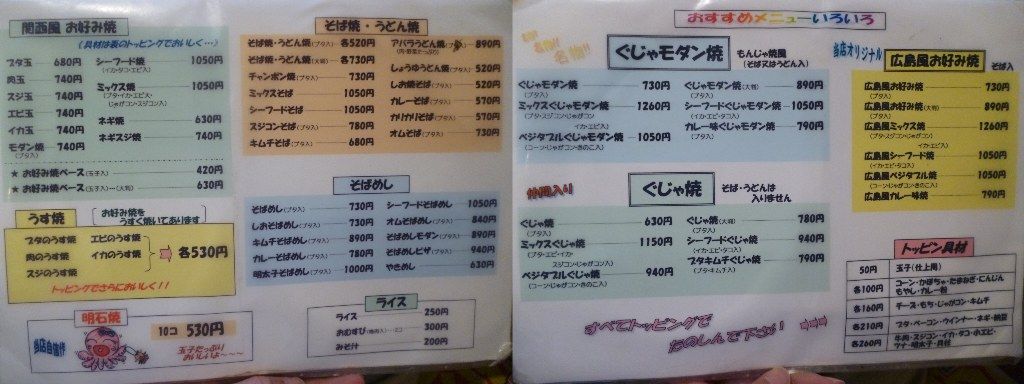 関西風 お好み焼
(具材は表のトッピングでおいしく…)
ブタ玉 680円
肉玉 740円
スジ玉 740円
エビ玉 740円
イカ玉 740円
モダン焼 740円
(ブタ入)
シーフード焼 1050円
(イカ・タコ・エビ入)
ミックス焼 1050円
(ブタ・イカ・エビ入・
じゃがコン・スジコン入)
ネギ焼 630円
ネギスジ焼 740円
★ お好み焼ベース(玉子入) 420円
★ お好み焼ベース(玉子入)…(大判) 630円
うす焼
お好み焼を
うすく焼いてあります
ブタのうす焼
肉のうす焼
スジのうす焼
エビのうす焼
イカのうす焼
各530円
トッピングでさらにおいしく!!
当店自信作
明石焼
10コ 530円
玉子たっぷり
おいしいよ〜〜〜
そば焼・うどん焼
そば焼・うどん焼(ブタ入) 各520円
そば焼・うどん焼(大判) 各730円
チャンポン焼(ブタ入) 730円
ミックスそば 1050円
シーフードそば 1050円
スジコンそば(ブタ入) 780円
キムチそば(ブタ入) 680円
アババうどん焼(ブタ入) 890円
(肉・野菜たっぷり)
しょうゆうどん焼(ブタ入) 520円
しお焼そば(ブタ入) 520円
カレーそば(ブタ入) 570円
カリカリそば(ブタ入) 570円
オムそば(ブタ入) 730円
そばめし
そばめし(ブタ入) 730円
しおそばめし(ブタ入) 730円
キムチそばめし(ブタ入) 890円
カレーそばめし(ブタ入) 780円
明太子そばめし(ブタ入) 1000円
シーフードそばめし 1050円
オムそばめし(ブタ入) 840円
そばめしモダン(ブタ入) 890円
そばめしピザ(ブタ入) 940円
やきめし 630円
ライス
ライス 250円
おむすび 300円
みそ汁 200円
おすすめメニューいろいろ
名物!!
ぐじゃモダン焼
もんじゃ焼風
(そば又はうどん入)
ぐじゃモダン焼 730円
(ブタ入)
ミックスぐじゃモダン焼 1260円
(ブタ・スジコン・ジャガコン
イカ・エビ入)
ベジタブルぐじゃモダン焼 1050円
(コーン・じゃがコン・きのこ入)
ぐじゃモダン焼(大判) 890円
(ブタ入)
シーフードぐじゃモダン焼 1050円
(イカ・エビ・タコ入)
カレー味ぐじゃモダン焼 790円
(ブタ入)
ぐじゃ焼
そば・うどんは
入りません
ぐじゃ焼 630円
(ブタ入)
ミックスぐじゃ焼 1150円
(ブタ・エビ・イカ
スジコン・ジャガコン入)
ベジタブルぐじゃ焼 940円
(コーン・じゃがコン・きのこ入)
ぐじゃ焼(大判) 780円
(ブタ入)
シーフードぐじゃ焼 940円
(イカ・エビ・タコ入)
ブタキムチぐじゃ焼 790円
(ブタ・キムチ入)
すべてトッピングで
たのしんで下さい
当店オリジナル
広島風お好み焼
そば入
広島風お好み焼 730円
(ブタ入)
広島風お好み焼(大判) 890円
(ブタ入)
広島風ミックス焼 1260円
(ブタ・スジコン・ジャガコン
イカ・エビ入)
広島風シーフード焼 1050円
(イカ・エビ・タコ入)
広島風ベジタブル焼 1050円
(コーン・じゃがコン・きのこ入)
広島風カレー味焼 790円
(ブタ入)
トッピン具材
50円 玉子(仕上用)
各100円 コーン・かぼちゃ・たまねぎ・にんじん
もやし・カレー粉
各160円 チーズ・もち・じゃがコン・キムチ
各210円 ブタ・ベーコン・ウインナー・ネギ・納豆
各260円 牛肉・スジコン・イカ・タコ・小エビ・
ツナ・明太子・貝柱